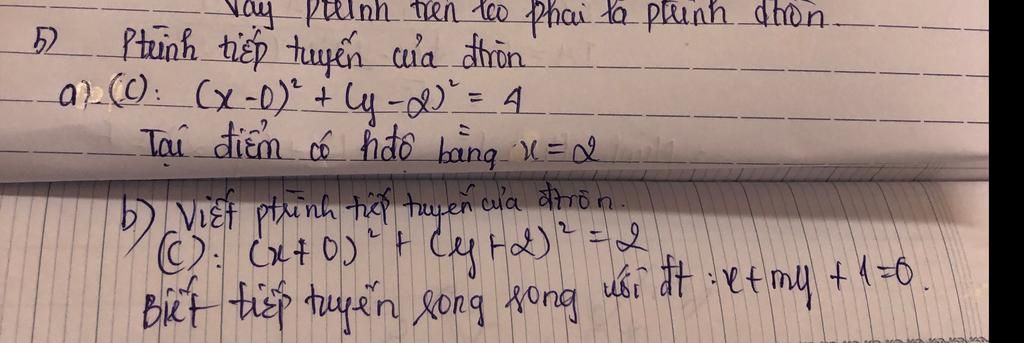 Vậy ptrình trên ko phải là ptrình đtròn.
5) Ptrình tiếp tuyến của đtròn
a) (C): (x-0)² + (y-2)² = 4
Tại điểm có hđộ bằng x = 2
b) Viết ptrình tiếp tuyến của đtròn.
(C): (x+0)² + (y+2)² = 2
Biết tiếp tuyến song song với đt: x+my+1=0.